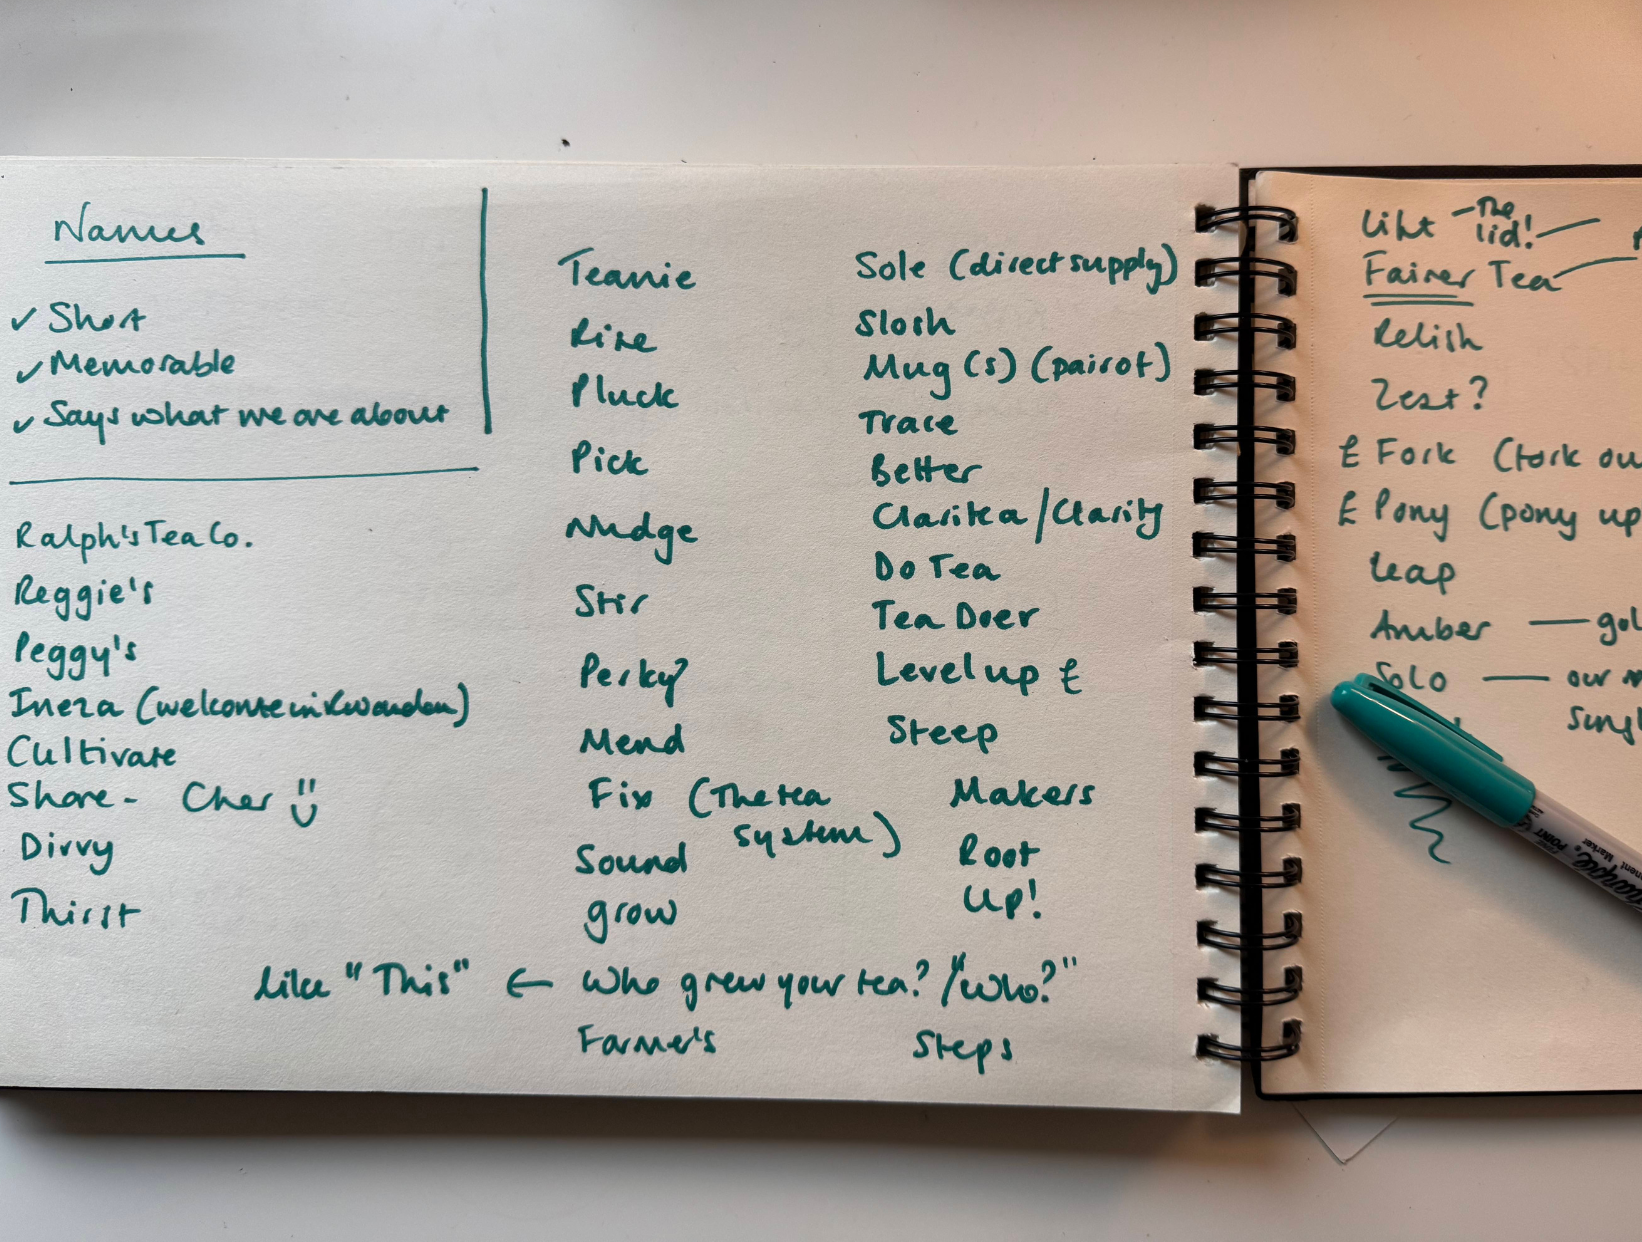 Names
✓ Short
✓ Memorable
✓ Says what we are about
Ralph's Tea Co.
Reggie's
Peggy's
Ineza (welcome in Rwandan)
Cultivate
Share - Cher
Divvy
Thirst
Teanie
Rise
Pluck
Pick
Nudge
Stir
Perky?
Mend
Fix (The tea
system)
Sound
grow
Sole (direct supply)
Slosh
Mug (s) (parrot)
Trace
Better
Claritea / Clarity
Do Tea
Tea Doer
Level up £
Steep
Makers
Root
Up!
like "This" ← Who grew your tea? / "Who?"
Farmer's
Steps
Lift - The
lid! -
Fairer Tea
Relish
Zest?
£ Fork (fork ou
£ Pony (pony up
Leap
Amber — gol
Solo — our
Singl
Sharpie
POINT